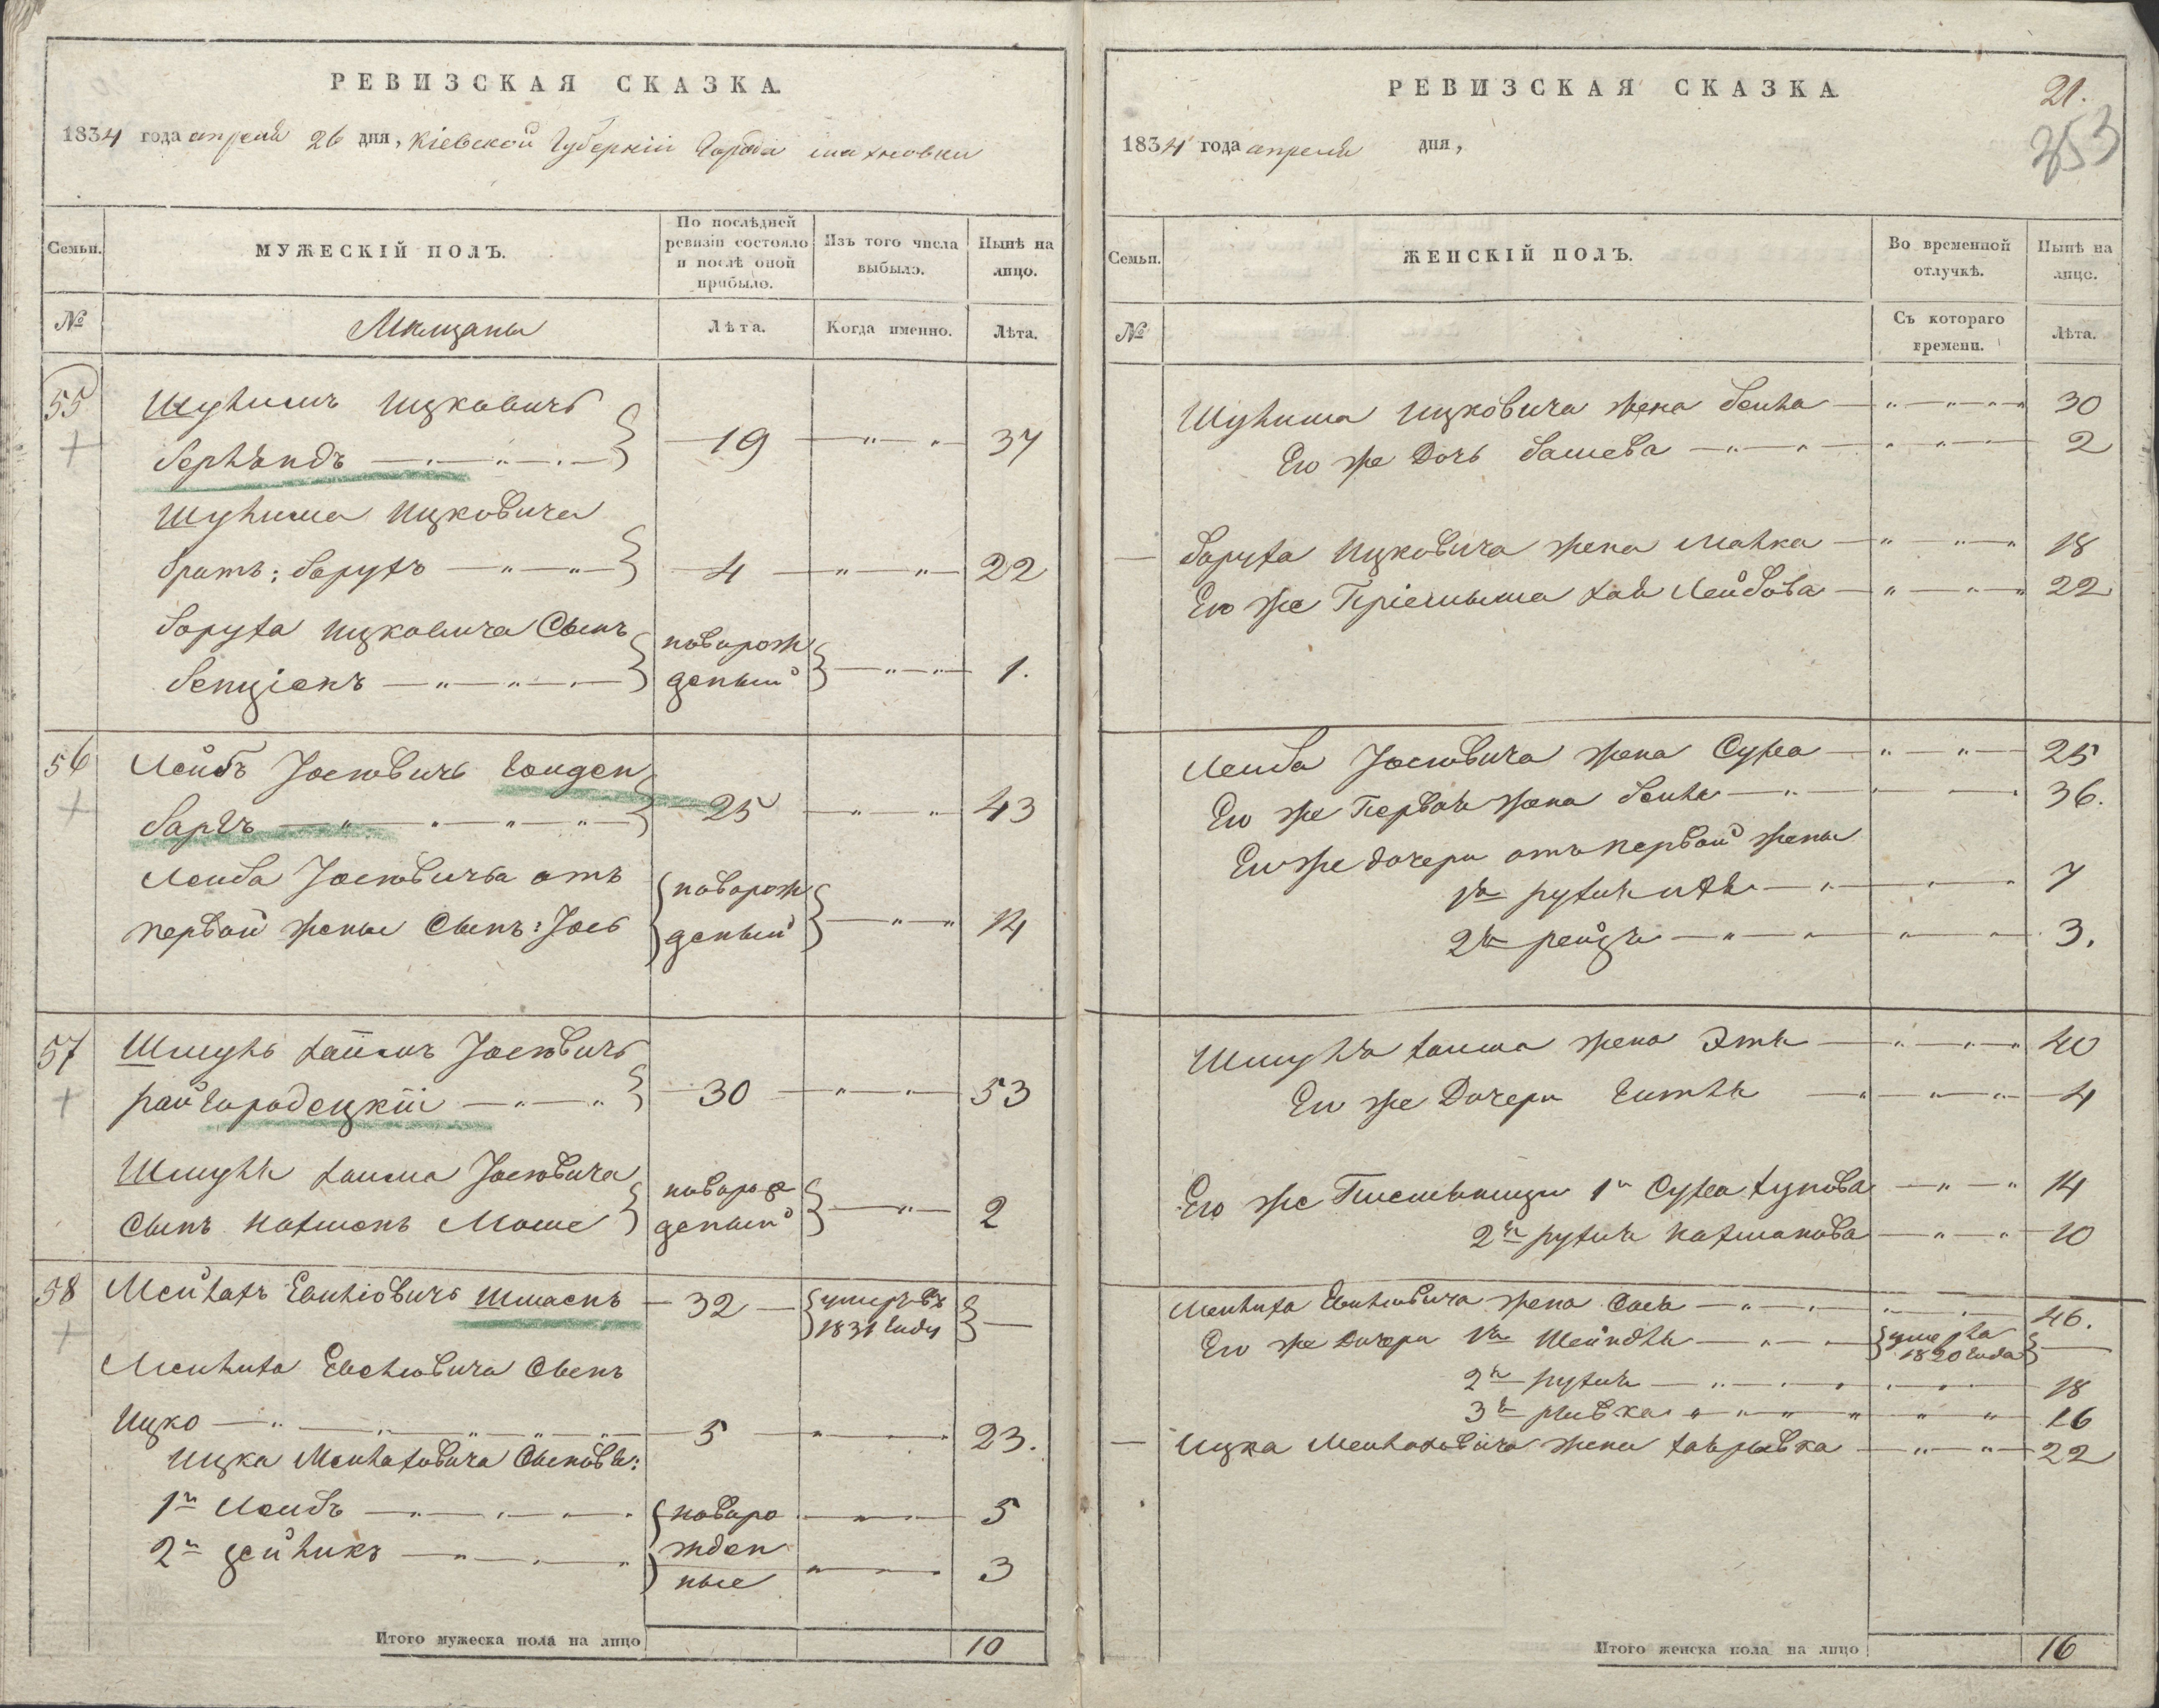 РЕВИЗСКАЯ СКАЗКА.
1834 года апреля 26 дня, Кіевской Губерніи Города Махновки
Семьи.
МУЖЕСКІЙ ПОЛЪ.
По послѣдней ревизіи состояло и послѣ оной прибыло.
Изъ того числа выбыло.
Нынѣ на лицо.
№
Мещаны
Лѣта.
Когда именно.
Лѣта.
55
Ицковичъ
19
37
Ицковича
братъ: Борухъ
4
22
Боруха Ицковича Сынъ
новорож
Бенціонъ
деный
1.
56
Лейбъ Іосіовичъ Голден
бергъ
25
43
Лейба Іосіовича отъ
новорож
первой жены Сынъ: Іось
деный
14
57
Шмуль Хаимъ Іосіовичъ
райгородецкій
30
53
Шмуля Хаима Іосіовича
новорож
сынъ Нахманъ Моше
деный
2
58
Шмаенъ
32
умеръ въ
1831 году
Сынъ
Ицко
5
23.
Ицка Сыновья:
1й Лейбъ
новоро
5
2й Зейликъ
жден
ные
3
Итого мужеска пола на лицо
10
РЕВИЗСКАЯ СКАЗКА
21.
253
1834 года апреля дня,
Семьи.
ЖЕНСКІЙ ПОЛЪ.
Во временной отлучкѣ.
Нынѣ на лицо.
№
Съ котораго времени.
Лѣта.
Ицковича жена Бейла
30
Его же Дочь Башева
2
Боруха Ицковича жена Малка
18
Его же Хая Лейбова
22
Лейба Іосіовича жена Сура
25
Его же Первая жена Бейла
36.
Его же дочери отъ первой жены
1я
7
2я рейзя
3.
Шмуля Хаима жена Этя
40
Его же Дочери Гитля
4
Его же Племянницы 1я Сура
14
2я рухля Нахманова
10
жена Бася
46.
Его же Дочери 1я Шейндля
умерла
1820 года
2я рухля
18
3я рывка
16
Ицка жена Хаярывка
22
Итого женска пола на лицо
16